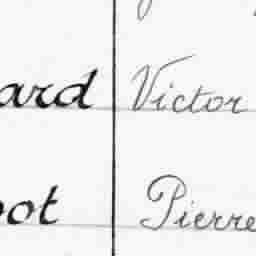 ard Victor
ot Pierre